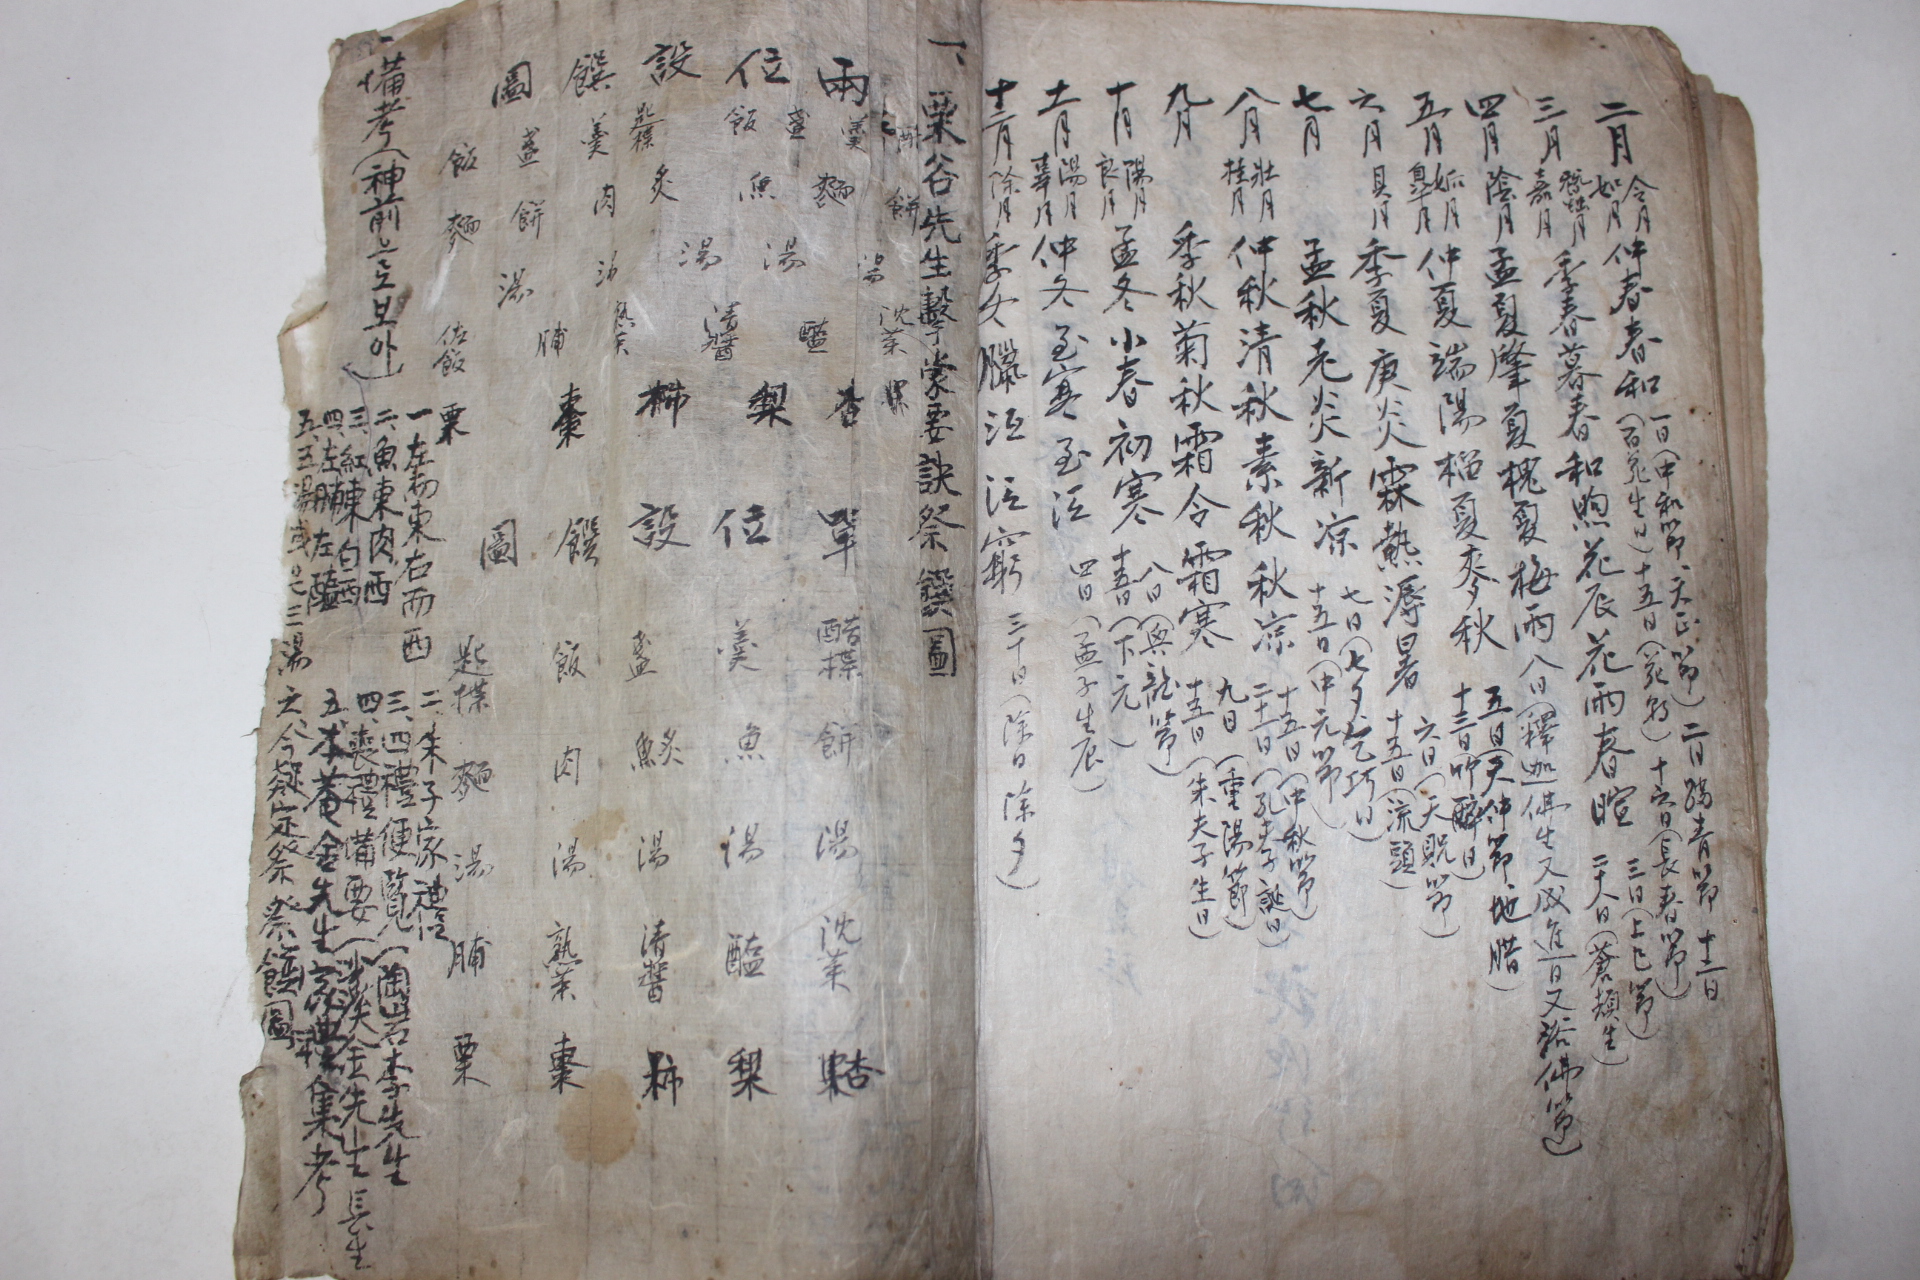 二月 令月 如月 仲春 春和 一日(中和節、天正節) 二日 踏青節 十二日
(百花生日) 十五日(花朝) 十六日(長春節)
三月 蚕月 嘉月 季春 暮春 和煦 花辰 花雨 春暄 三日(上巳節)
二十八日(蒼頡生)
四月 陰月 孟夏 肇夏 槐夏 梅雨 八日(釋迦佛生又成道日又浴佛節)
五月 姤月 皐月 仲夏 端陽 榴夏 麥秋 五日(天仲節 地腊)
十三日(竹醉日)
六月 具月 季夏 庚炎 霖熱 溽暑 六日(天貺節)
十五日(流頭)
七月 孟秋 老炎 新凉 七日(七夕 乞巧日)
十五日(中元節)
八月 壯月 桂月 仲秋 清秋 素秋 秋凉 十五日(中秋節)
二十一日(孔夫子誕日)
九月 季秋 菊秋 霜令 霜寒 九日(重陽節)
十五日(朱夫子生日)
十月 陽月 良月 孟冬 小春 初寒 八日(興龍節)
十五日(下元)
十一月 湯月 辜月 仲冬 至寒 至沍 四日(孟子生辰)
十二月 除月 季冬 臘沍 沍窮 三十日(除日 除夕)
一、栗谷先生擊蒙要訣祭饌圖
兩位設饌圖
羹 盞 飯 匙楪 羹 盞 飯
餠 麵 魚 炙 肉 餠 麵
湯 湯 湯 湯 湯
沈菜 醢 清醬 熟菜 脯 佐飯
杏 梨 柿 棗 栗
單位設饌圖
醋楪 羹 盞 飯 匙楪
餠 魚 炙 肉 麵
湯 湯 湯 湯 湯
沈菜 醢 清醬 熟菜 脯
杏 梨 柿 棗 栗
一備考(神前으로보아)
一、左東右西
二、魚東肉西
三、紅東白西
四、左脯左醢
五、五湯或은三湯
二、朱子家禮
三、四禮便覽(陶岩李先生
四、喪禮備要(沙溪金先生長生
之、今疑家祭祭饌圖